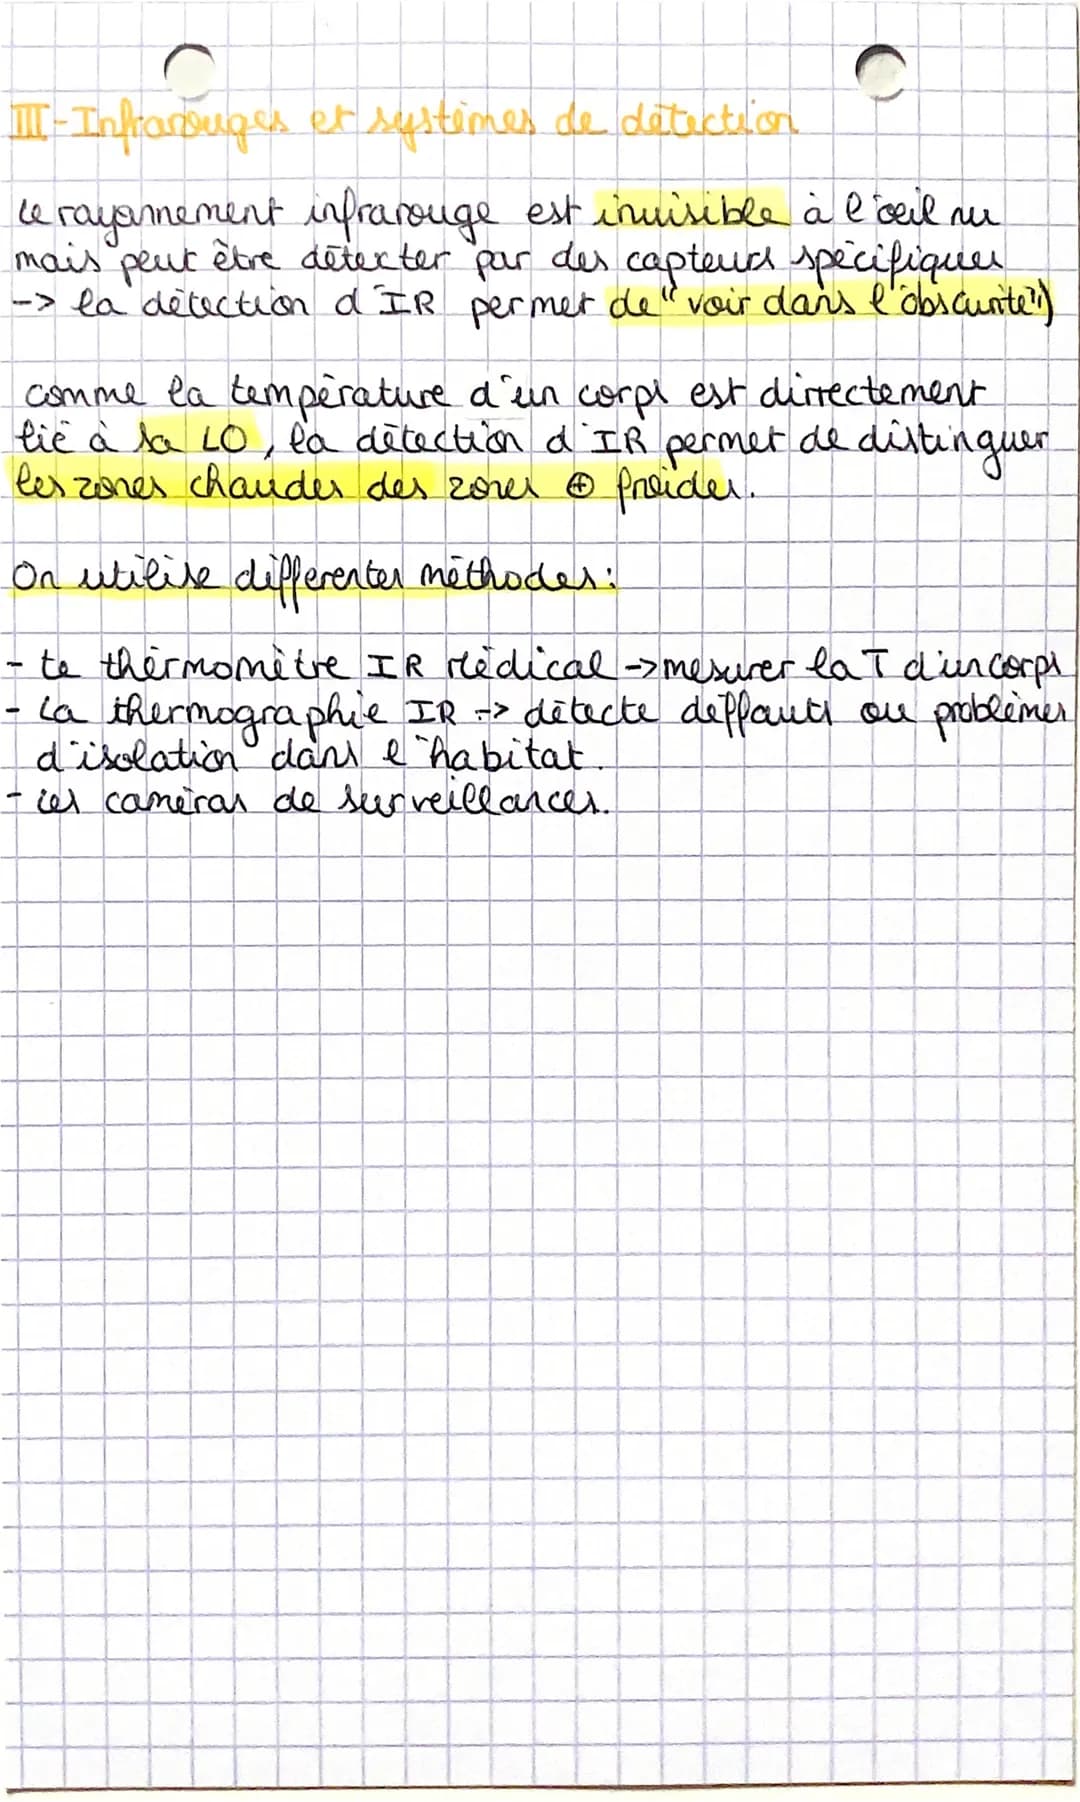 III - Infrarouges et systèmes de détection
Le rayonnement infrarouge est invisible à l'œil nu
mais peut être détecter par des capteurs spécifiques
-> la détection d'IR permet de "voir dans l'obscurité")
comme la température d'un corps est dirrectement
lié à sa LO, la détection d'IR permet de distinguer
les zones chaudes des zones ⊕ froides.
On utilise differentes méthodes:
- Le thérmomètre IR Médical -> mesurer la T d'un corps
- La thermographie IR -> détecte deffauts ou problèmes
d'isolation dans l'habitat.
- Les caméras de surveillances.